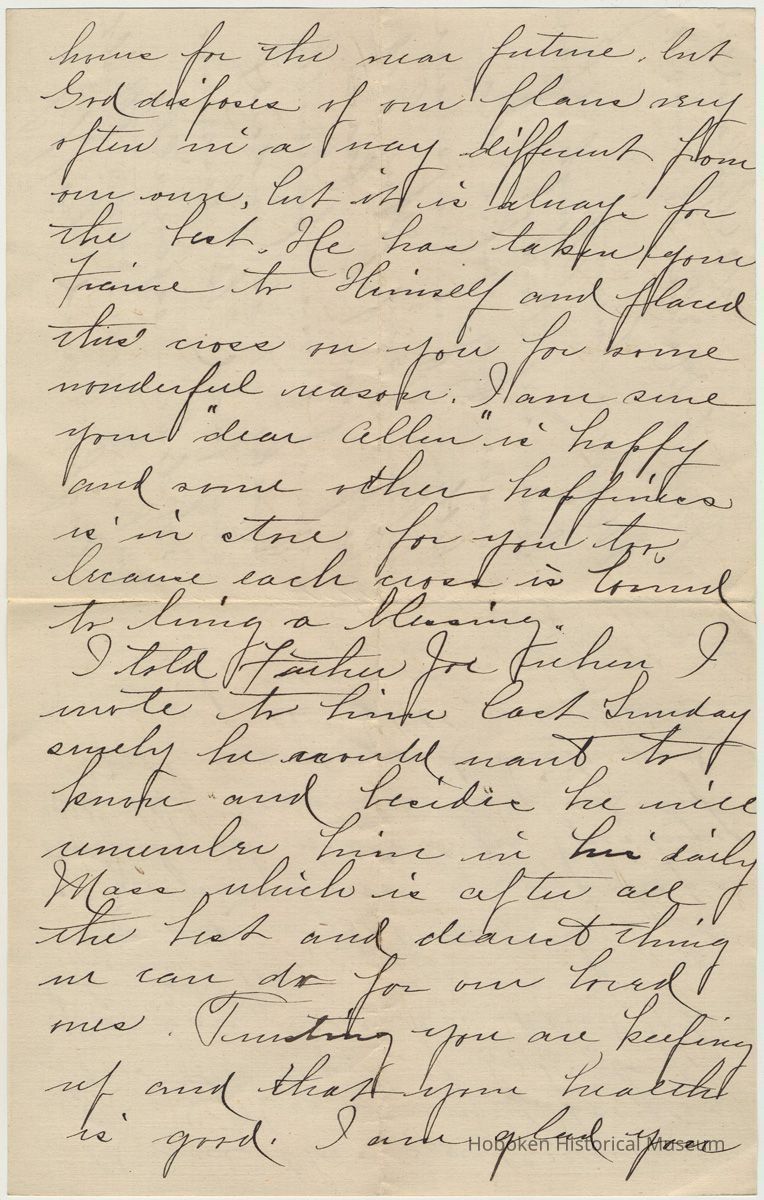 home for the near future, but
God disposes of our plans very
often in a way different from
our own, but it is always for
the best. He has taken your
to Himself and placed
this cross on you for some
wonderful reason. I am sure
your "dear Allen" is happy
and some other happiness
is in store for you too,
because each cross is bound
to bring a blessing.
I told Father Joe when I
wrote to him last Sunday
surely he would want to
know and besides he will
remember him in his daily
Mass which is after all
the best and dearest thing
we can do for our loved
ones. Trusting you are keeping
up and that your health
is good. I am glad you
Hoboken Historical Museum